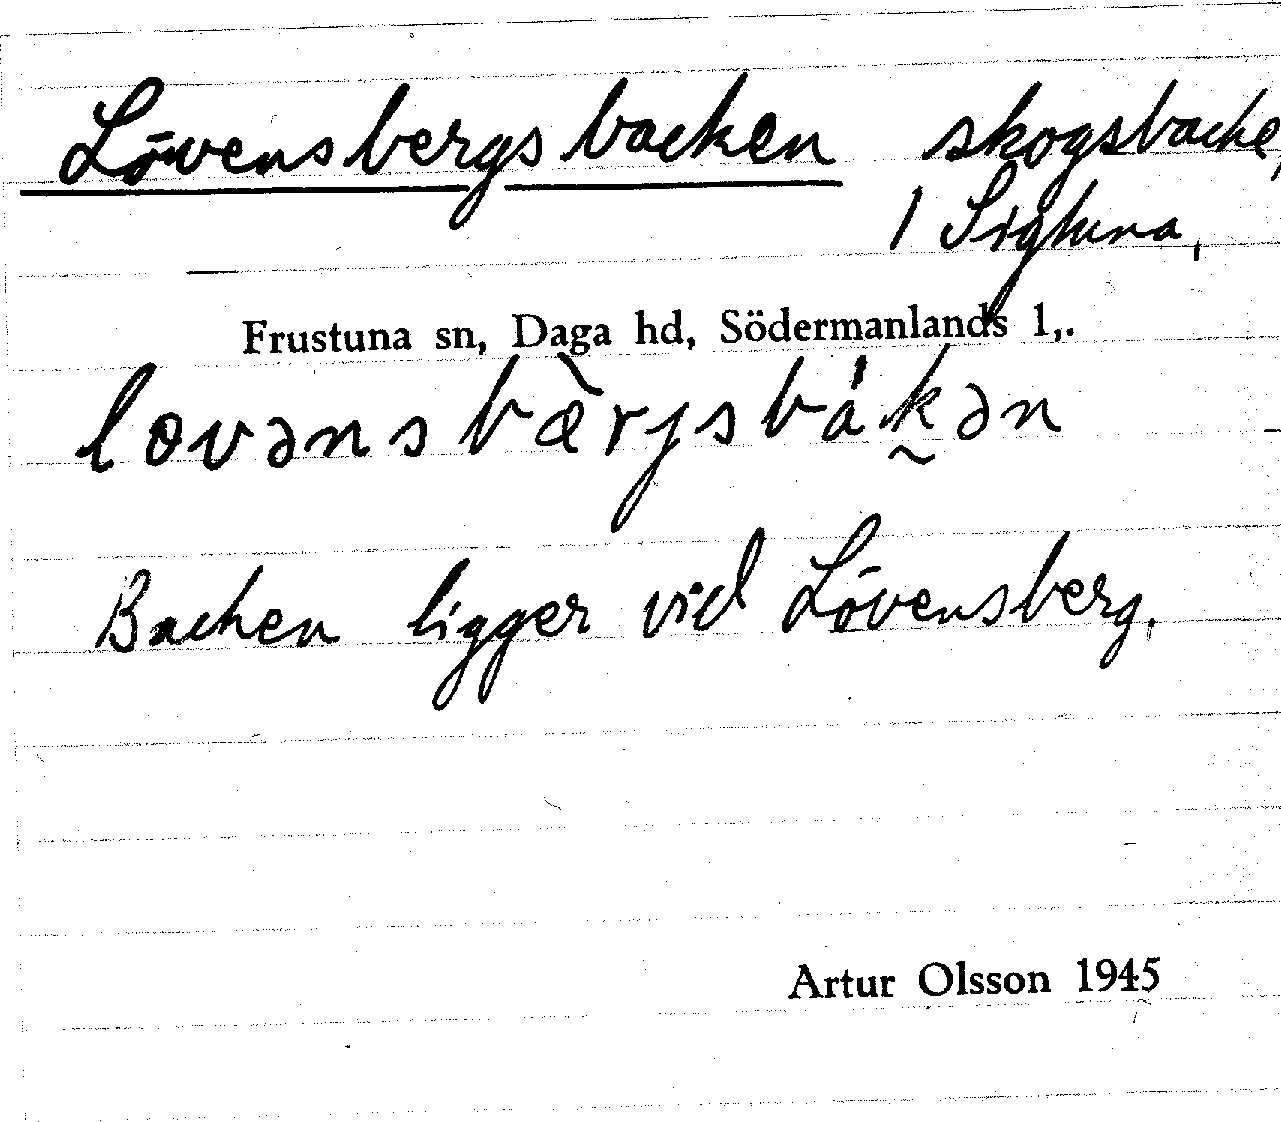 Lövensbergsbacken skogsbacke,
1 Sigtuna,
Frustuna sn, Daga hd, Södermanlands l,.
lovənsbæ̀rjsbák̰ən
Backen ligger vid Lövensberg.
Artur Olsson 1945